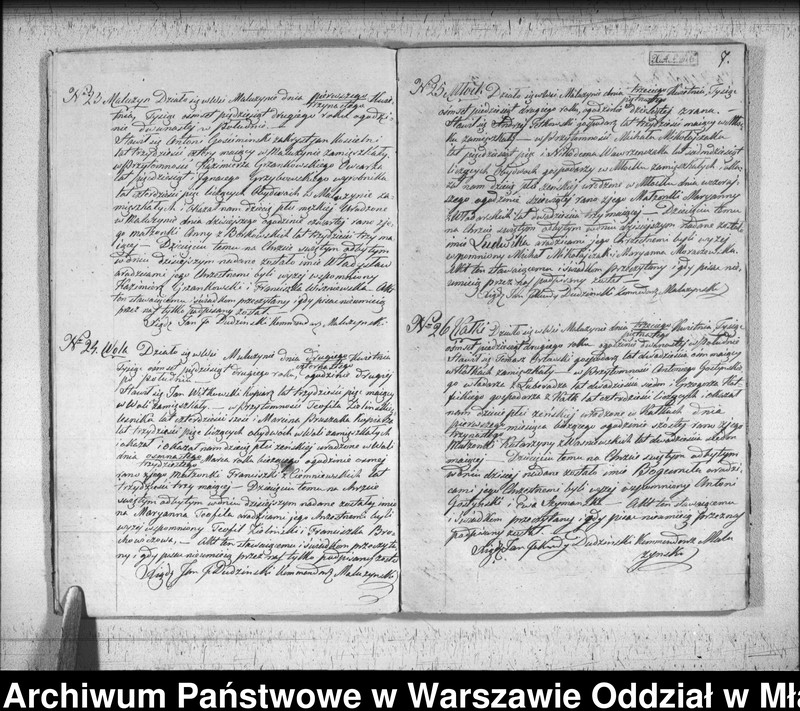 N° 23 Maluzyn Działo się w Wsi Maluzynie dnia pierwszego
trzynastego
Tysiąc osmset pięćdziesiąt drugiego roku o godzi-
nie dwunastej w Południe
Stawił się Antoni zakrystjan Kościelni
lat trzydzieści mający w Maluzynie zamieszkały
w Przytomności Kazimierza Grzankowskiego Owczarza
lat pięćdziesiąt Ignacego Grzybowskiego wyrobnika
lat czterdzieści pięć liczących Obydwoch w Maluzynie za-
mieszkałych i okazał nam dziecię płci męzkiej Urodzone
w Maluzynie dnia dzisiejszego o godzinie czwartej rano z je-
go małżonki Anny z lat trzydzieści trzy ma-
jącej — Dziecięciu temu na Chrzcie świętym odbytym
w dniu dzisiejszym nadane zostało imie Władysław
a rodzicami jego Chrzestnemi byli wyżej wspomniony
Kazimierz Grzankowski i Franciszka Wiśniewska Akt
ten stawającemu i świadkom przeczytany i gdy pisać nieumieją
przez nas tylko podpisany został
Xiądz Jan J. Dudzinski Kommendarz Maluzynski
N° 24. Wola Działo się w Wsi Maluzynie dnia drugiego Kwietnia
czternastego
Tysiąc osmset pięćdziesiąt drugiego roku, o godzinie drugiej
po południu
Stawił się Jan Witkowski Kopiarz lat trzydzieści pięć mający
w Woli zamieszkały — w Przytomności Teofila Zielinskiego
lat czterdzieści sześć i Marcina Kopiarza
lat trzydzieści pięć liczących obydwoch w Woli zamieszkałych
i okazał nam dziecię płci zenskiej urodzone w Woli
dnia osmnastego Marca roku bieżącego o godzinie osmej
trzydziestego
rano z jego małżonki Franciszki z Ciemniewskich lat
trzydzieści trzy mającej — Dziecięciu temu na chrzcie
swiętym odbytym w dniu dzisiejszym nadane zostały imio-
na Maryanna Teofila rodzicami jego Chrzestnemi byli
wyżej wspomniony Teofil Zielinski i Franciszka Bro-
chowiczowa — Akt ten stawającemu i świadkom przeczyta-
ny i gdy pisać nieumieją przez nas tylko podpisany został
Xiądz Jan J. Dudzinski Kommendarz Maluzynski
7.
N° 25. Działo się w Wsi Maluzynie dnia trzeciego Kwietnia Tysiąc
piętnastego
osmset pięćdziesiąt drugiego roku, o godzinie dziesiątej z rana. —
Stawił się Andrzej gospodarz lat trzydzieści mający w
zamieszkały — w Przytomności Michała Mikołajczaka
lat pięćdziesiąt pięć i Nikodema Wawrzenczaka lat
liczących Obydwoch gospodarzy w zamieszkałych i oka-
zał nam dziecię płci zenskiej urodzone w dnia wczoraj-
szego o godzinie dziewiątej rano z jego Małzonki Maryanny
lat dwadzieścia trzy mającej — Dziecięciu temu
na Chrzcie swiętym odbytym w dniu dzisiejszym nadane zostało
imie Ludwika a rodzicami jego Chrzestnemi byli wyżej
wspomniony Michał Mikołajczak i Maryanna Morawska.
Akt ten stawającemu i świadkom przeczytany i gdy pisać nie-
umieją przez nas podpisany został
Xiądz Jan Jakudy Dudzinski Kommendarz Maluzynski
N° 26 Kątki Działo się w Wsi Maluzynie dnia trzeciego Kwietnia Tysiąc
piętnastego
osmset pięćdziesiąt drugiego roku o godzinie dwunastej w Południe
Stawił się Tomasz Orłowski gospodarz lat dwadzieścia osm mający
w Kątkach zamieszkały — w Przytomności Antoniego Gostynskie-
go włodarza z lat dwadzieścia siedm i Grzegorza
gospodarza z Kątk lat czterdzieści liczących i okazał
nam dziecię płci zeńskiej urodzone w Kątkach dnia
pierwszego miesiąca bieżącego o godzinie szostej rano z jego
trzynastego
Małżonki Katarzyny z Wasiewskich lat dwadzieścia siedm
mającej Dziecięciu temu na Chrzcie swiętym odbytym
w dniu dzisiej nadane zostało imie Bogumiła a rodzi-
cami jego Chrzestnemi byli wyżej wspomniony Antoni
Gostynski i Ewa Szymanska — Akt ten stawającemu
i świadkom przeczytany i gdy pisać nieumieją przez nas
podpisany został.
Xiądz Jan Jakudy Dudzinski Kommendarz Malu
zynski
Archiwum Państwowe w Warszawie Oddział w Mła